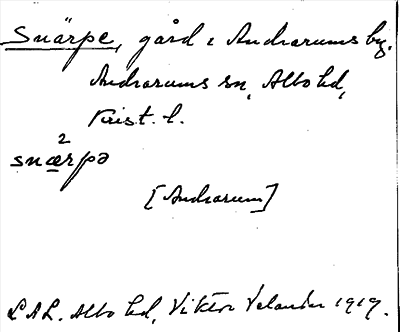 Snärpe, gård i Andrarums by.
Andrarums sn, Albo hd,
Krist. l.
2
snærpə
[Andrarum]
LAL. Albo hd, Viktor Velander 1919.